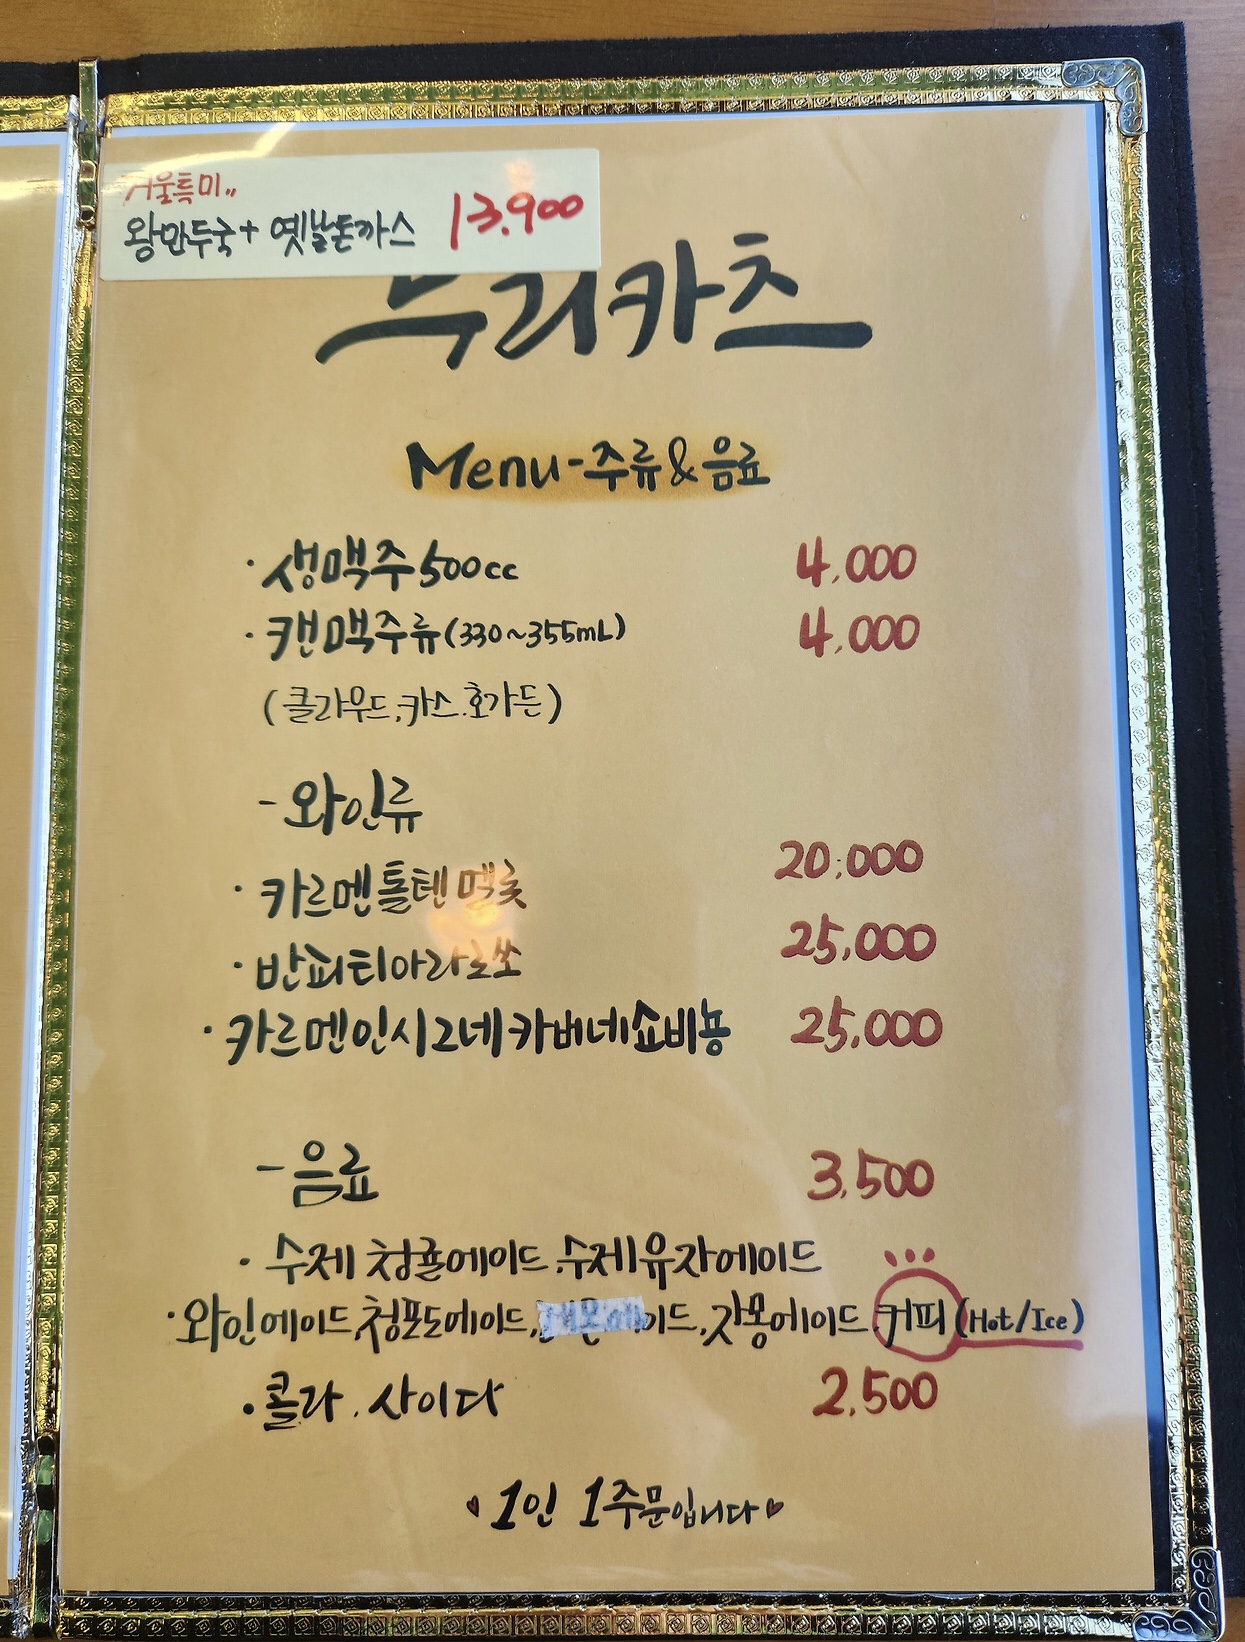 겨울특미..
왕만두국+ 옛날돈까스 13,900
누리카츠
Menu-주류&음료
· 생맥주 500cc 4,000
· 캔맥주류(330~355mL) 4,000
(클라우드.카스.호가든)
- 와인류
· 카르멘톨텐 멜롯 20,000
· 반피티아라로쏘 25,000
· 카르멘인시그네카버네쇼비뇽 25,000
- 음료 3,500
· 수제 청귤에이드.수제유자에이드
· 와인에이드,청포도에이드,레몬에이드,자몽에이드.커피(Hot/Ice)
· 콜라.사이다 2,500
1인 1주문입니다